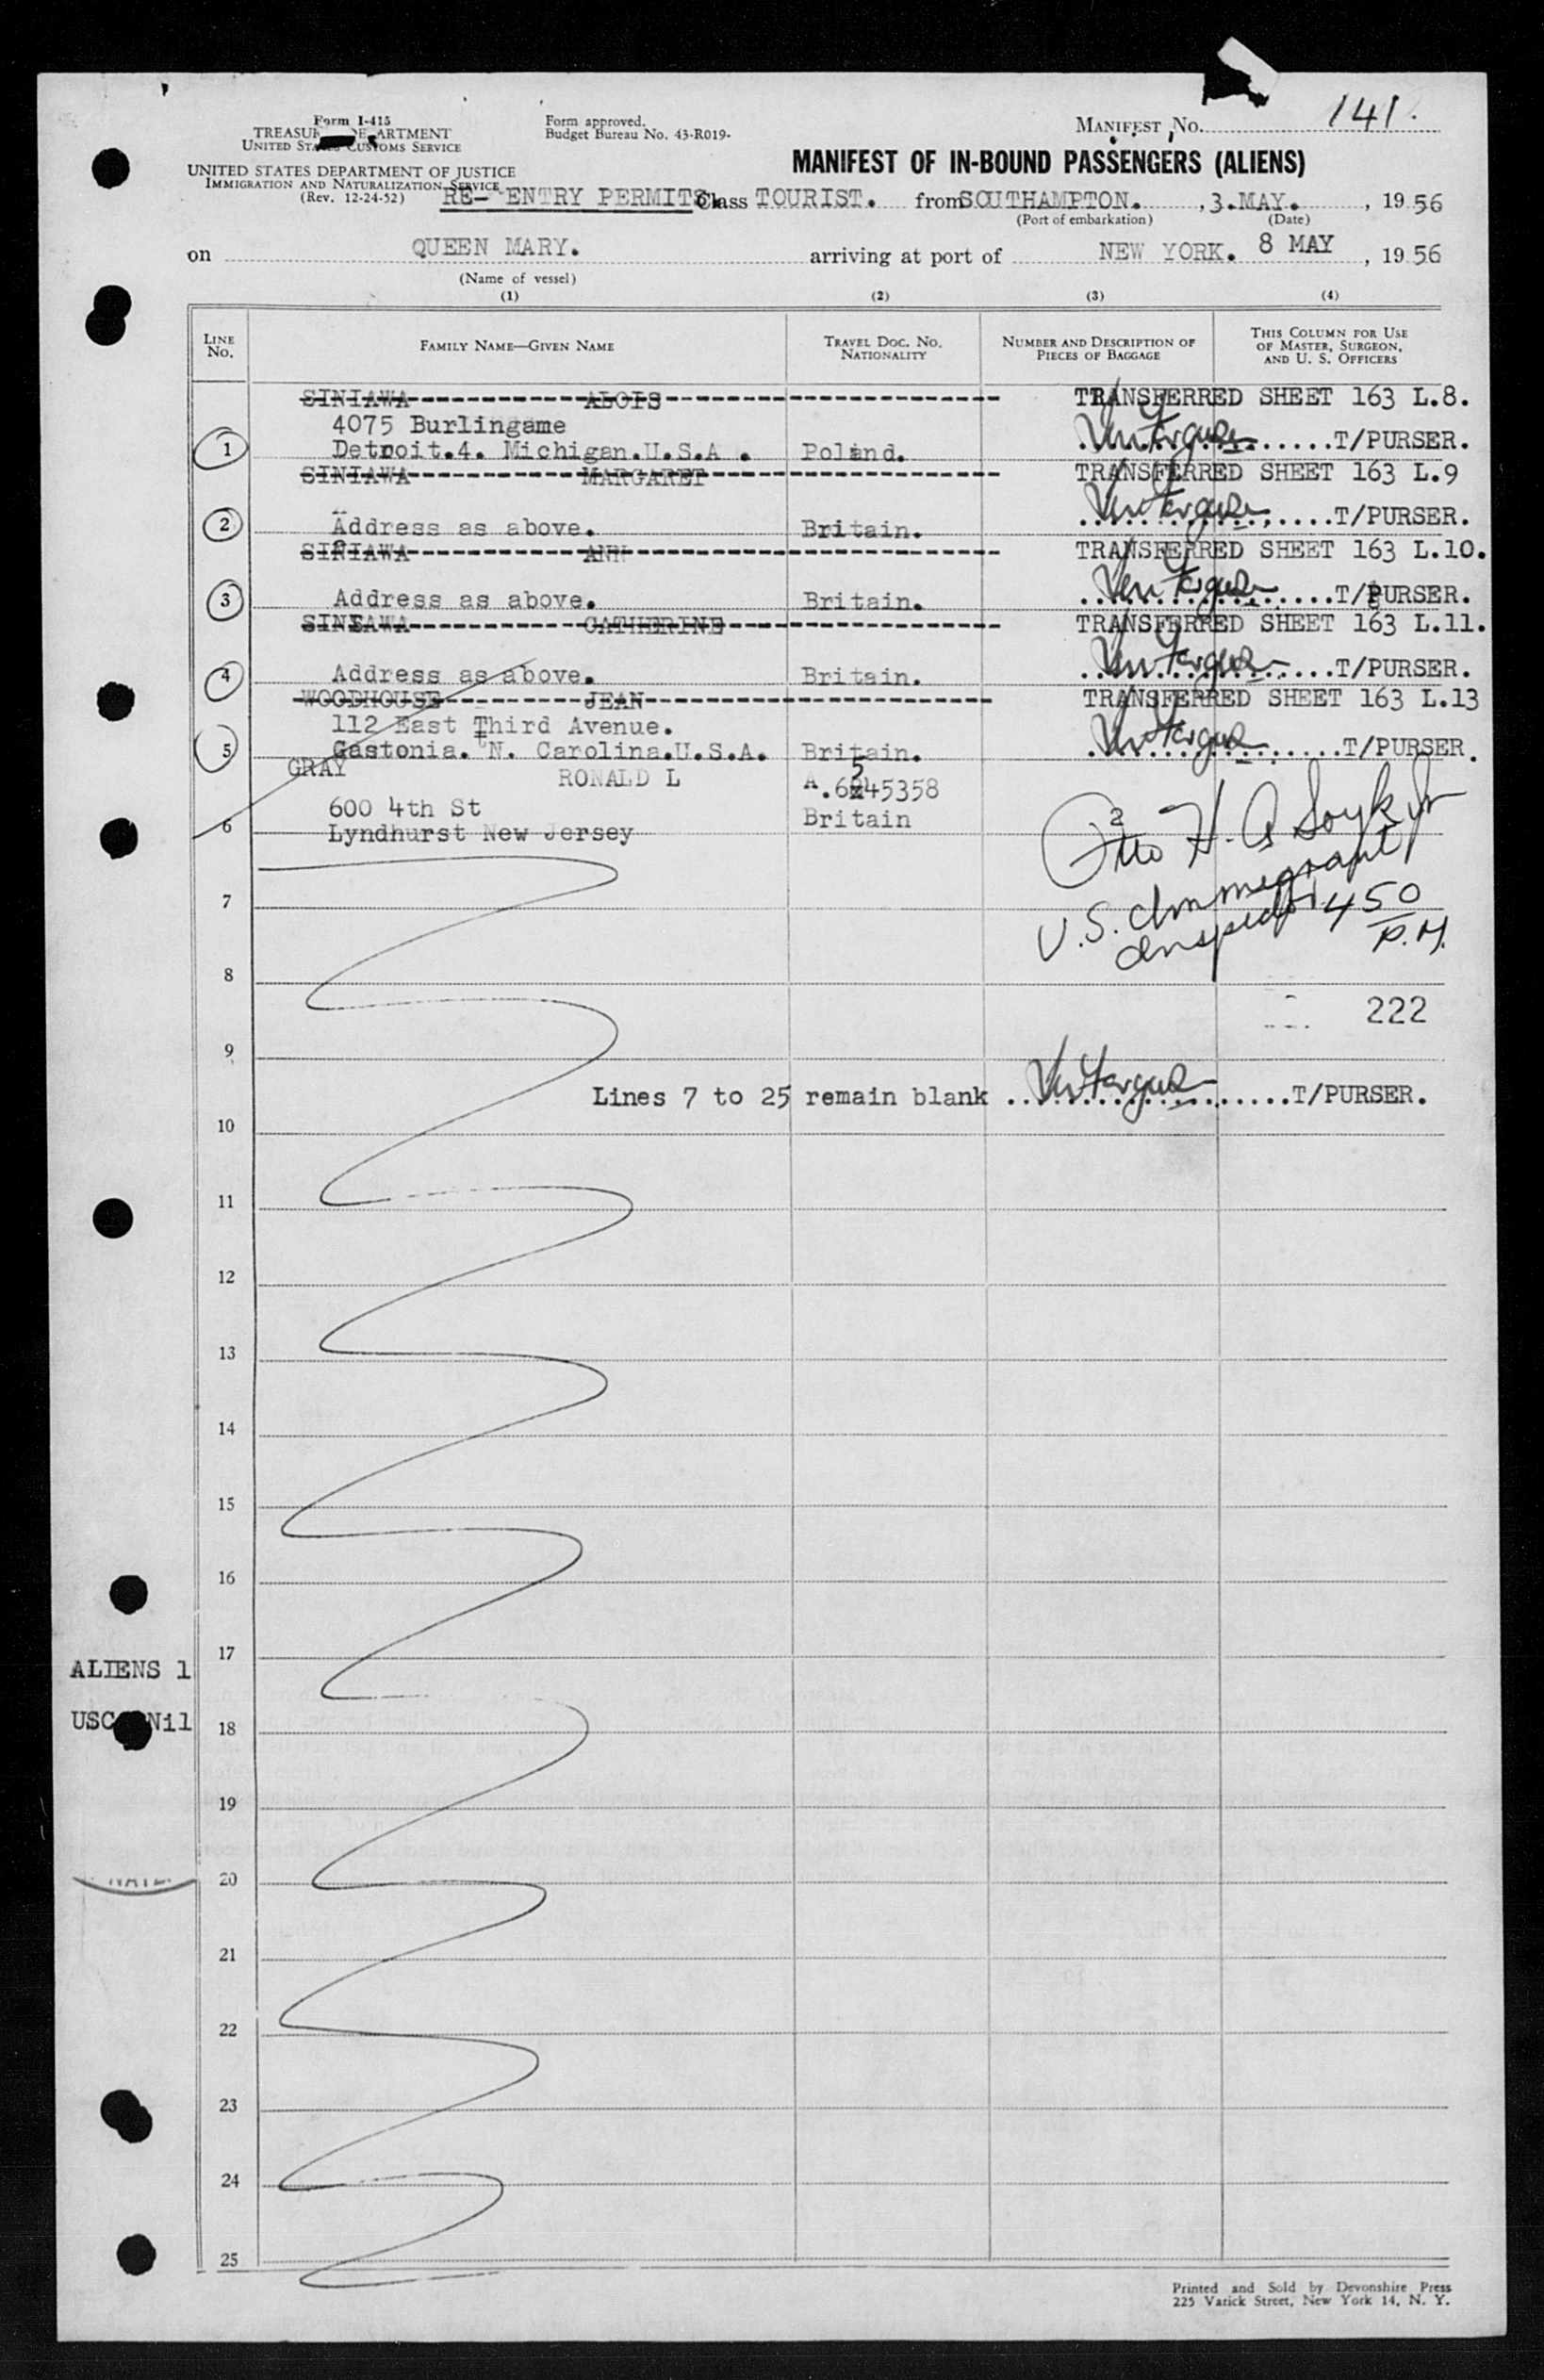 Form I-415
TREASURY DEPARTMENT
UNITED STATES CUSTOMS SERVICE
UNITED STATES DEPARTMENT OF JUSTICE
IMMIGRATION AND NATURALIZATION SERVICE
(Rev. 12-24-52)
Form approved.
Budget Bureau No. 43-R019-
MANIFEST NO. 141.
MANIFEST OF IN-BOUND PASSENGERS (ALIENS)
RE- ENTRY PERMITS. Class TOURIST. from SOUTHAMPTON. , 3.MAY. , 1956
(Port of embarkation) (Date)
on QUEEN MARY. arriving at port of NEW YORK. 8 MAY , 1956
(Name of vessel)
(1) (2) (3) (4)
LINE NO. FAMILY NAME—GIVEN NAME TRAVEL DOC. NO. NATIONALITY NUMBER AND DESCRIPTION OF PIECES OF BAGGAGE THIS COLUMN FOR USE OF MASTER, SURGEON, AND U. S. OFFICERS
SINIAWA ALOIS TRANSFERRED SHEET 163 L.8.
4075 Burlingame
1 Detroit.4. Michigan.U.S.A . Poland. T/PURSER.
SINIAWA MARGARET TRANSFERRED SHEET 163 L.9
2 Address as above. Britain. T/PURSER.
SINIAWA ANN TRANSFERRED SHEET 163 L.10.
3 Address as above. Britain. T/PURSER.
SINIAWA CATHERINE TRANSFERRED SHEET 163 L.11.
4 Address as above. Britain. T/PURSER.
WOODHOUSE JEAN TRANSFERRED SHEET 163 L.13
112 East Third Avenue.
5 Gastonia. N. Carolina.U.S.A. Britain. T/PURSER.
GRAY RONALD L A.6545358
600 4th St Britain
6 Lyndhurst New Jersey
2
Otto H. A
U.S. Immigrant
Inspector 450
P.M.
7
8
222
9
Lines 7 to 25 remain blank T/PURSER.
10
11
12
13
14
15
16
17
ALIENS 1
USC Nil
18
19
20
21
22
23
24
25
Printed and Sold by Devonshire Press
225 Varick Street, New York 14, N. Y.